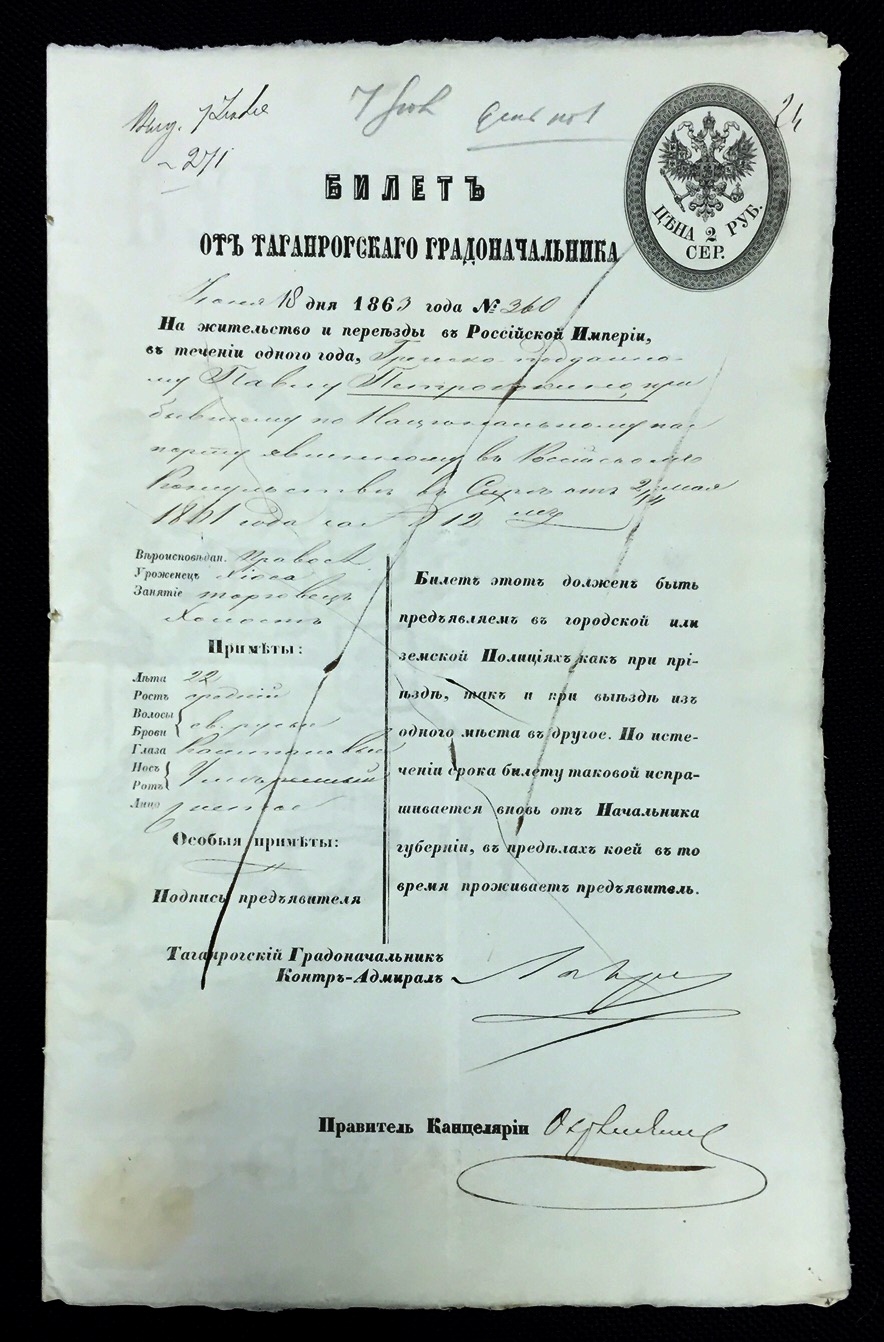 271
24
БИЛЕТЪ
ЦѢНА 2 РУБ.
СЕР.
ОТЪ ТАГАНРОГСКАГО ГРАДОНАЧАЛЬНИКА
Іюня 18 дня 1863 года № 360
На жительство и переѣзды въ Россійской Имперіи,
въ теченіи одного года, Греческо-подданно-
му Павлу Петрококино, при
бывшему по Національному пас
порту явленному въ Россійскомъ
Консульствѣ въ Сирѣ отъ 2/14 мая
1861 года за № 12
Вѣроисповѣдан. Правосл.
Уроженецъ Хіоса
Занятіе торговецъ
Холостъ
Примѣты:
Лѣта 22
Ростъ средній
Волосы
Брови св. русы
Глаза Каштановые
Носъ
Ротъ Умѣренный
Лицо чистое
Особыя примѣты:
Подпись предъявителя
Билетъ этотъ долженъ быть
предъявляемъ въ городской или
земской Полиціяхъ какъ при прі-
ѣздѣ, такъ и при выѣздѣ изъ
одного мѣста въ другое. По исте-
ченіи срока билету таковой испра-
шивается вновь отъ Начальника
губерніи, въ предѣлахъ коей въ то
время проживаетъ предъявитель.
Таганрогскій Градоначальникъ
Контръ-Адмиралъ
Правитель Канцеляріи